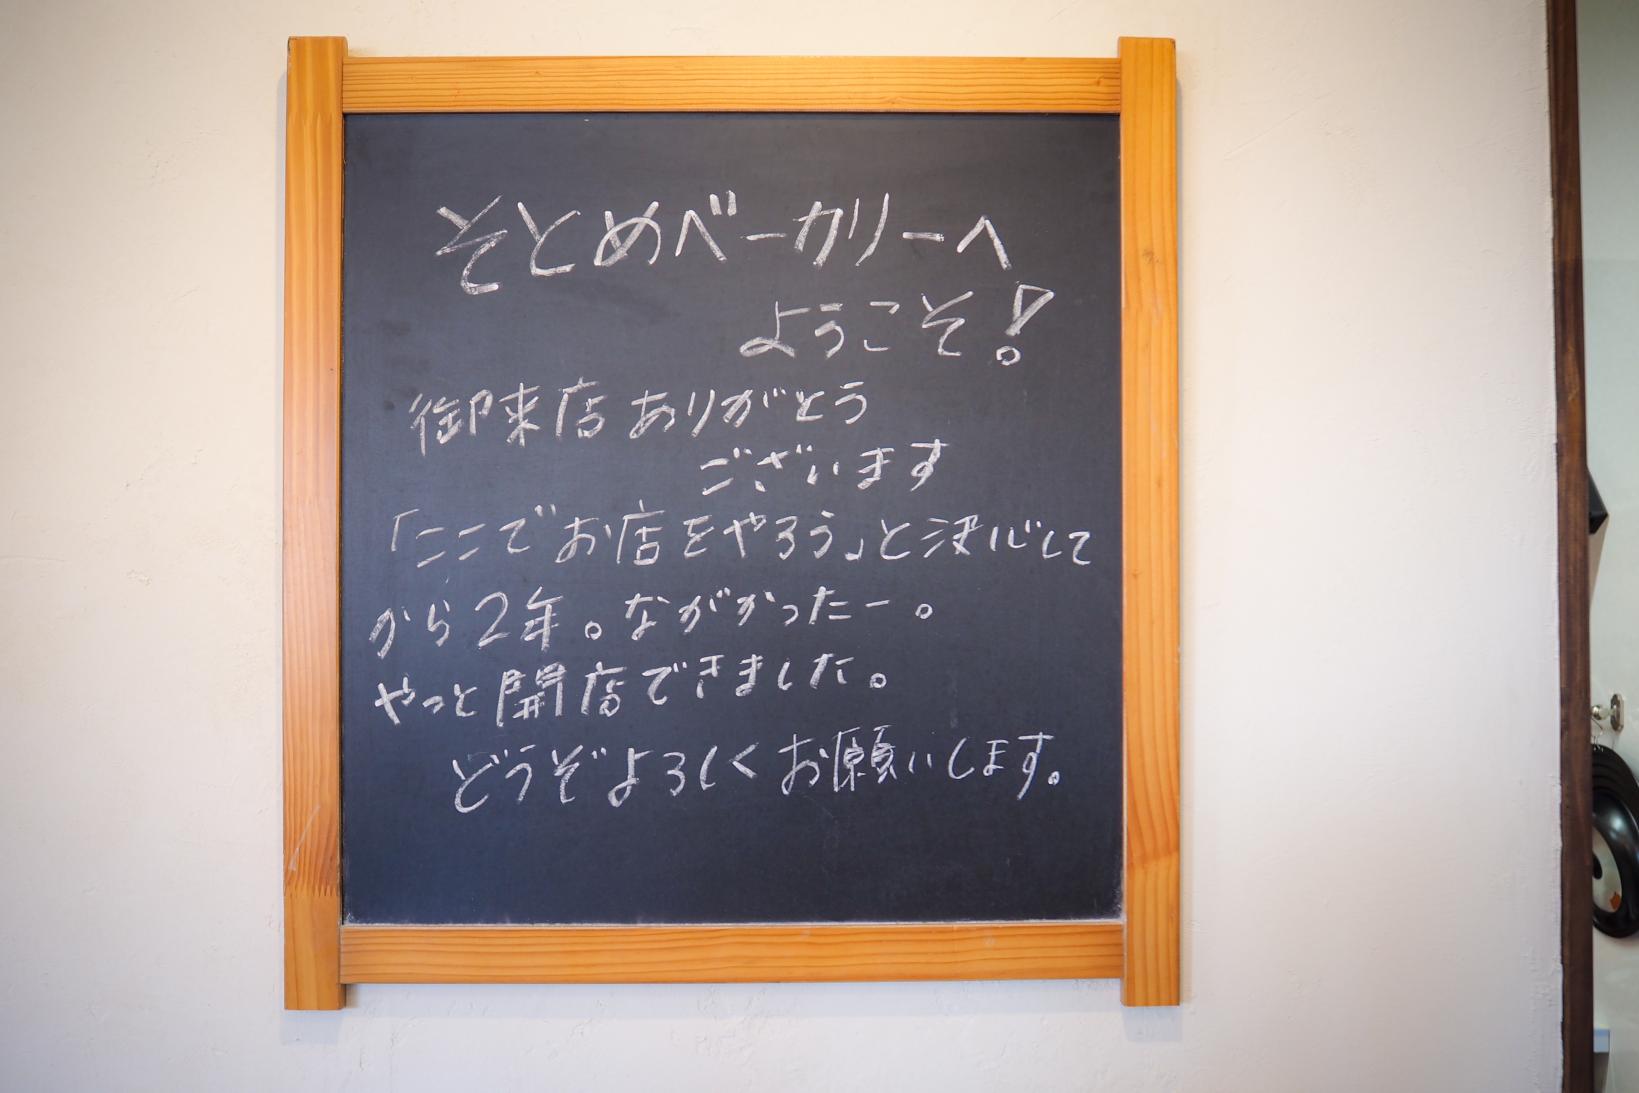 そとめベーカリーへ
ようこそ!
御来店ありがとう
ございます
「ここでお店をやろう」と決心して
から2年。ながかったー。
やっと開店できました。
どうぞよろしくお願いします。